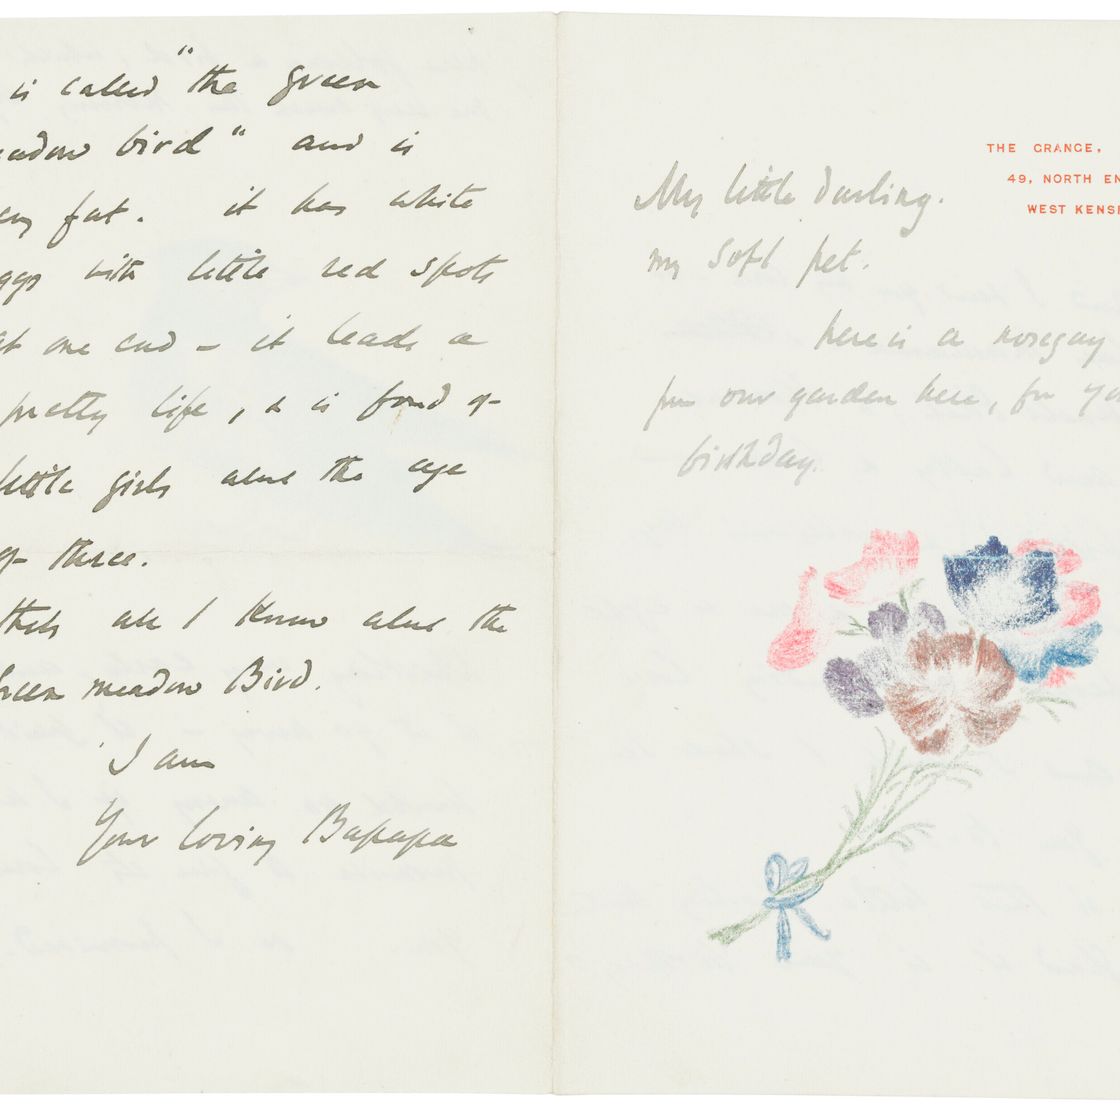 is called "the green
meadow bird" and is
very fat. it has white
eggs with little red spots
at one end – it leads a
pretty life, & is fond of
little girls about the age
of three.
thats all I know about the
Green meadow Bird.
I am
Your loving Bapapa
THE GRANGE,
49, NORTH EN
WEST KENSI
My little darling.
my soft pet.
here is a nosegay
from our garden here, for yo
birthday.